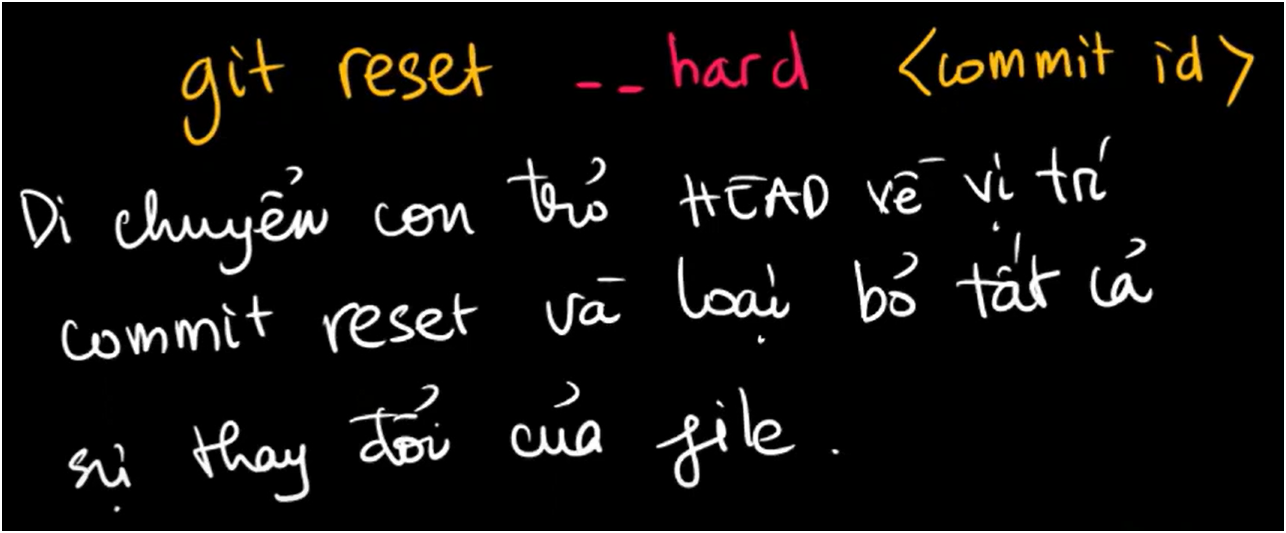 git reset --hard <commit id>
Di chuyển con trỏ HEAD về vị trí
commit reset và loại bỏ tất cả
sự thay đổi của file.